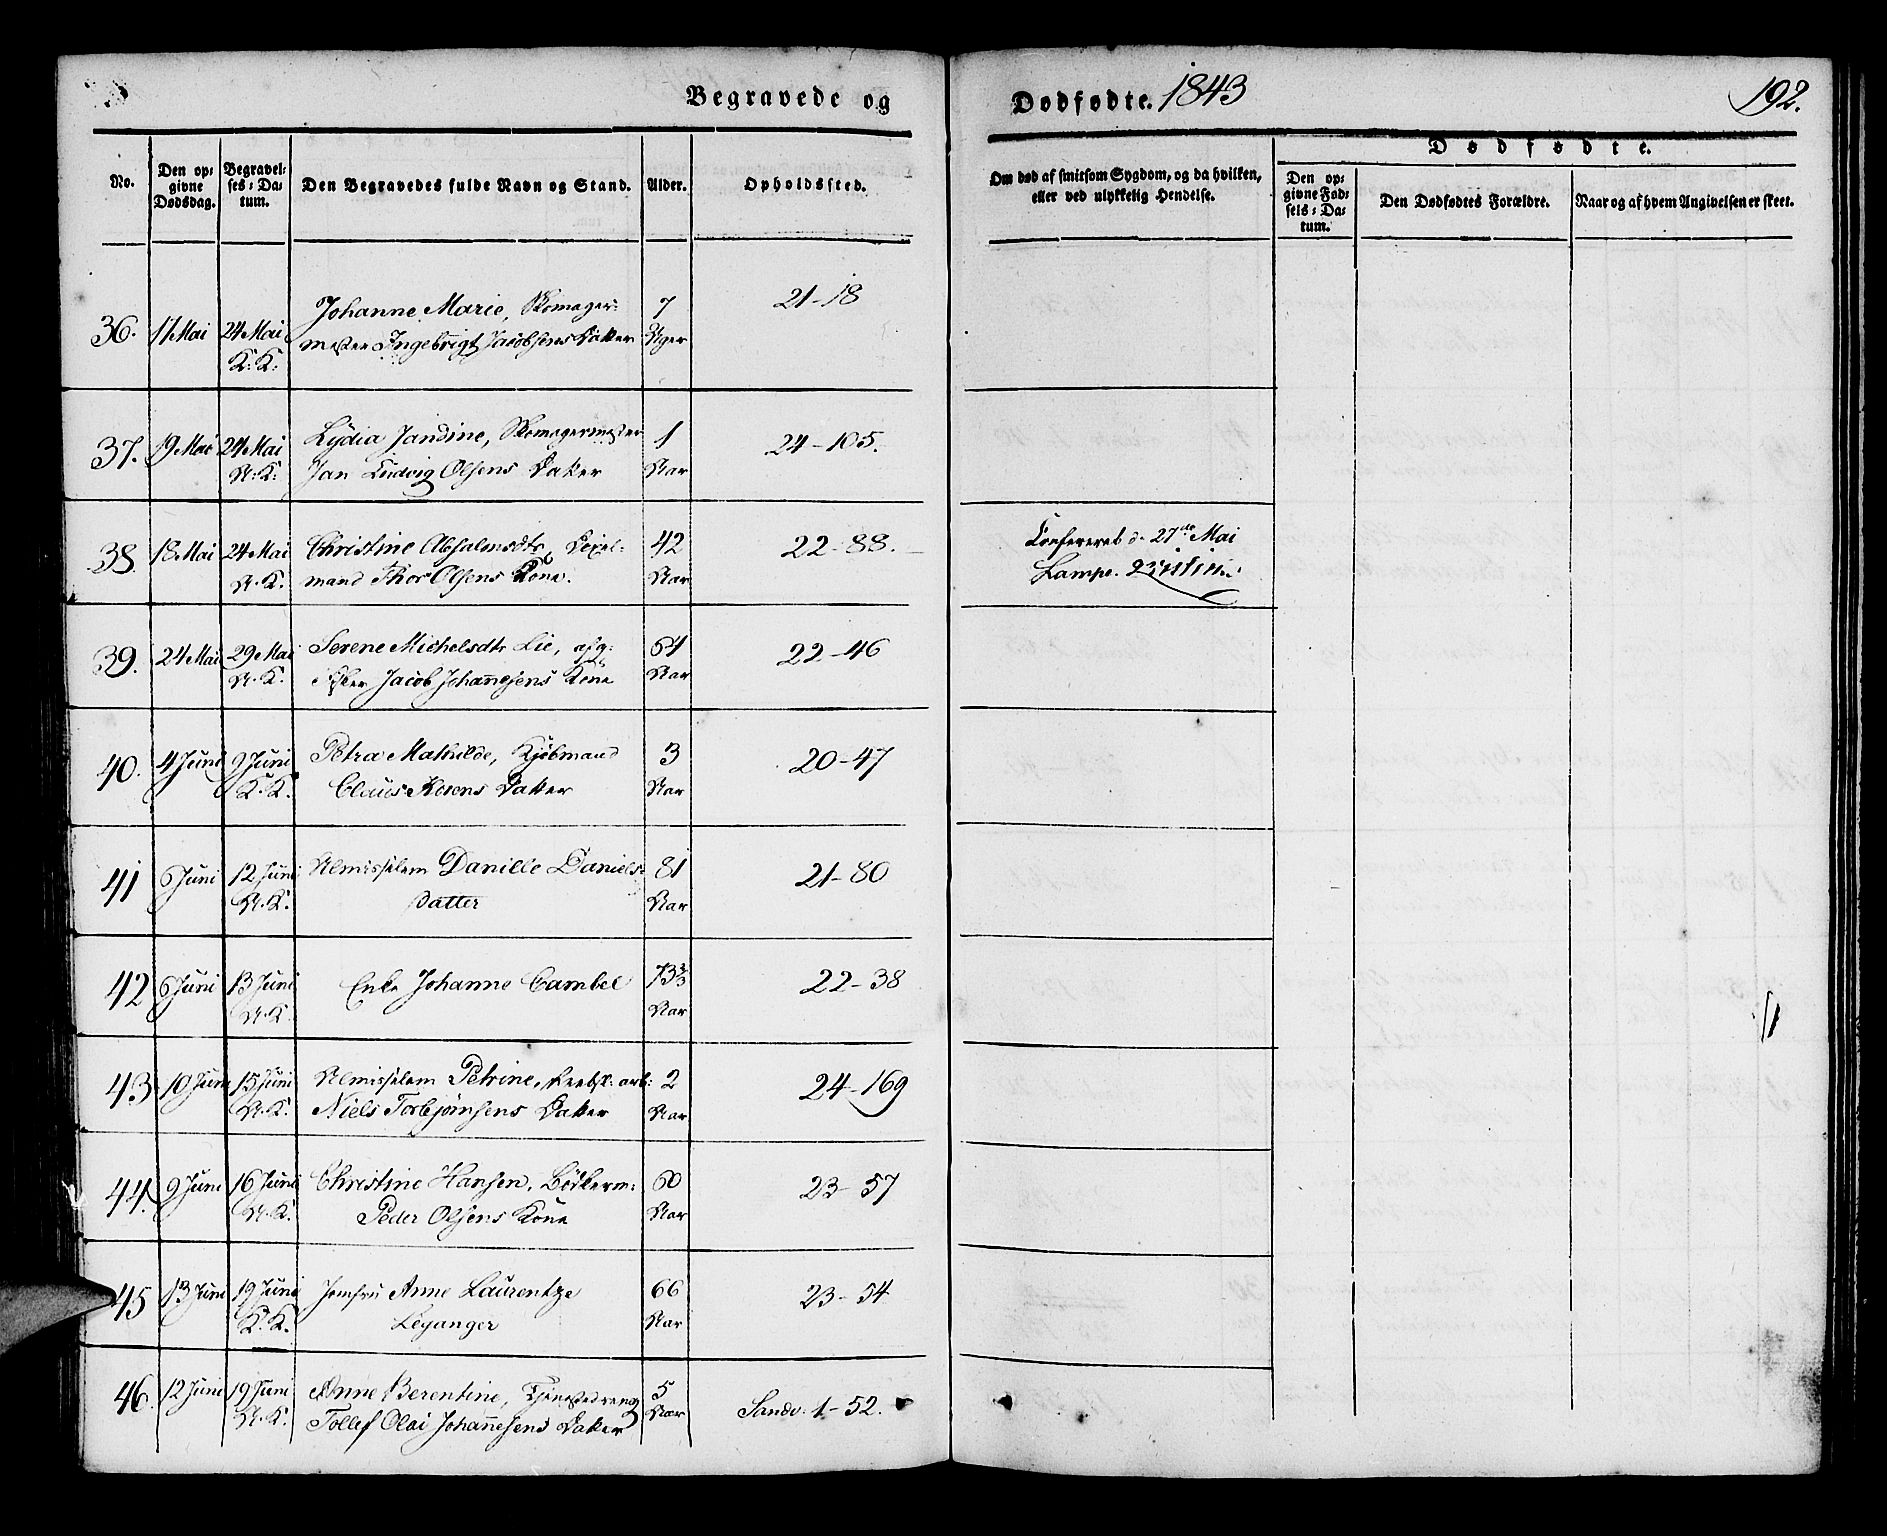 Begravede og Dødfødte. 1843
192.
No. Den opgivne Dødsdag. Begravelses-Datum. Den Begravedes fulde Navn og Stand. Alder. Opholdssted. Om død af smitsom Sygdom, og da hvilken, eller ved ulykkelig Hendelse. Dødfødte. Den opgivne Fødsels-Datum. Den Dødfødtes Forældre. Naar og af hvem Angivelsen er skeet.
36. 17 Mai 24 Mai Johanne Marie, Skomager: 7 21-18
K: K: mester Ingebrigt Jacobsens Datter Uger
37. 19 Mai 24 Mai Lydia Jandine, Skomagermester 1 24-105.
A: K: Jan Ludvig Olsens Datter Aar
38. 18 Mai 24 Mai Christine Absalmsdtr, 42 22-88. Confereret d. 27de Mai
A. K. mand Thor Olsens Kone. Aar Lampe.
39. 24 Mai 29 Mai Serene Michelsdtr Lie, afg: 64 22-46
A. K. Jacob Johannesens Kone Aar
40. 4 Juni 9 Juni Petra Mathilde, Kjøbmand 3 20-47
K. K. Claus Rosens Datter Aar
41 6 Juni 12 Juni Almisselem Danille Daniels- 81 21-80
A. K. datter Aar
42 6 Juni 13 Juni Enke Johanne Cambel 73 22-38
A. K. Aar
43 10 Juni 15 Juni Almisselem Petrine, arb: 2 24-169
A. K. Niels Torbjørnsens Datter Aar
44. 9 Juni 16 Juni Christine Hansen, Bødkerm: 60 23-57
A. K. Peder Olsens Kone Aar
45 13 Juni 19 Juni Jomfru Anne Laurentze 66 23-54
K. K. Leganger Aar
46. 12 Juni 19 Juni Anne Berentine, Tjenestedreng 5 Sandv: 1-52.
A. K. Tollef Olai Johannesens Datter Aar